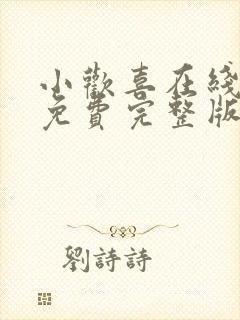 小歡喜在綫
免費完整版
劉詩詩